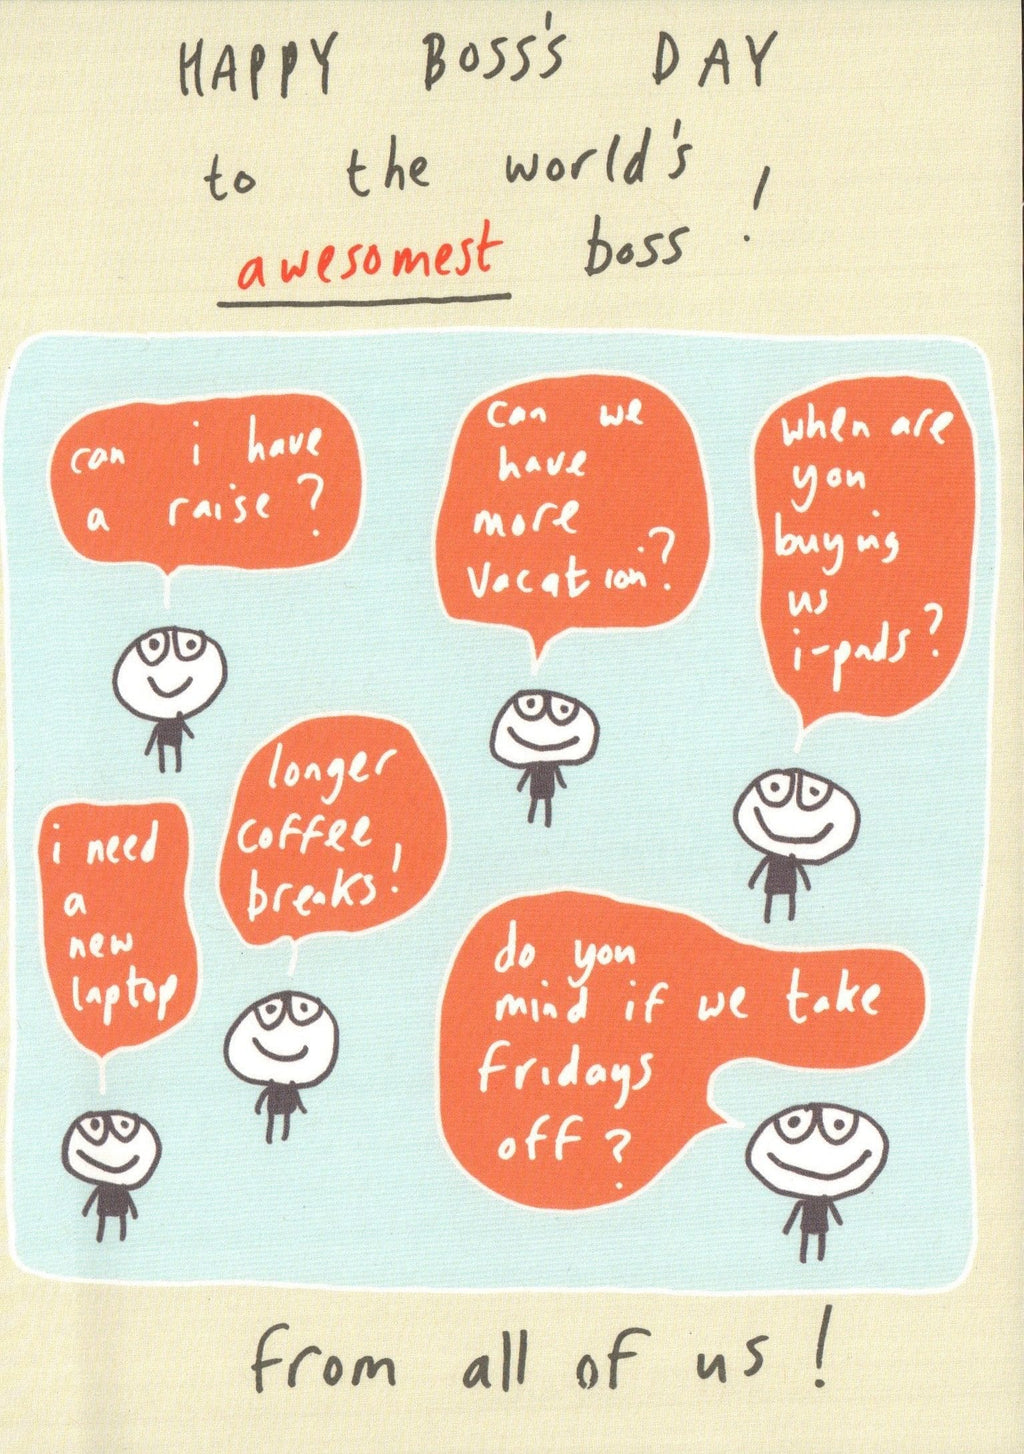 HAPPY BOSS'S DAY
to the world's
awesomest boss!
can i have
a raise?
can we
have
more
vacation?
when are
you
buying
us
i-pads?
longer
coffee
breaks!
i need
a
new
laptop
do you
mind if we take
fridays
off?
from all of us!